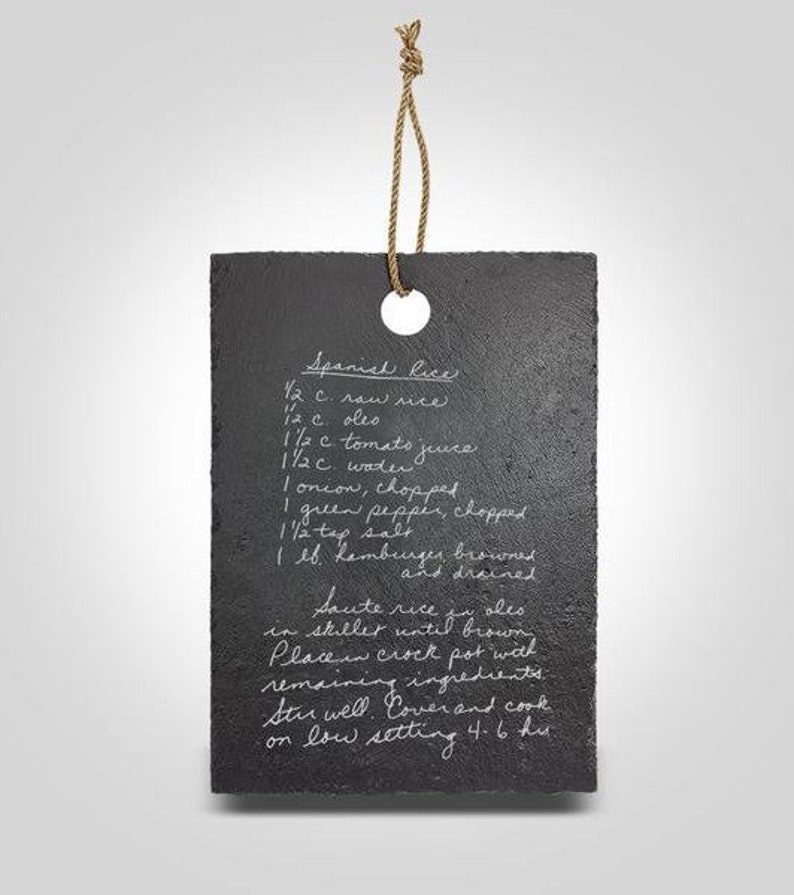 Spanish Rice
1/2 c. raw rice
1/2 c. oleo
1 1/2 c. tomato juice
1 1/2 c. water
1 onion, chopped
1 green pepper, chopped
1 1/2 tsp salt
1 lb. hamburger, browned
and drained
Saute rice in oleo
in skillet until brown.
Place in crock pot with
remaining ingredients.
Stir well. Cover and cook
on low setting 4-6 hrs